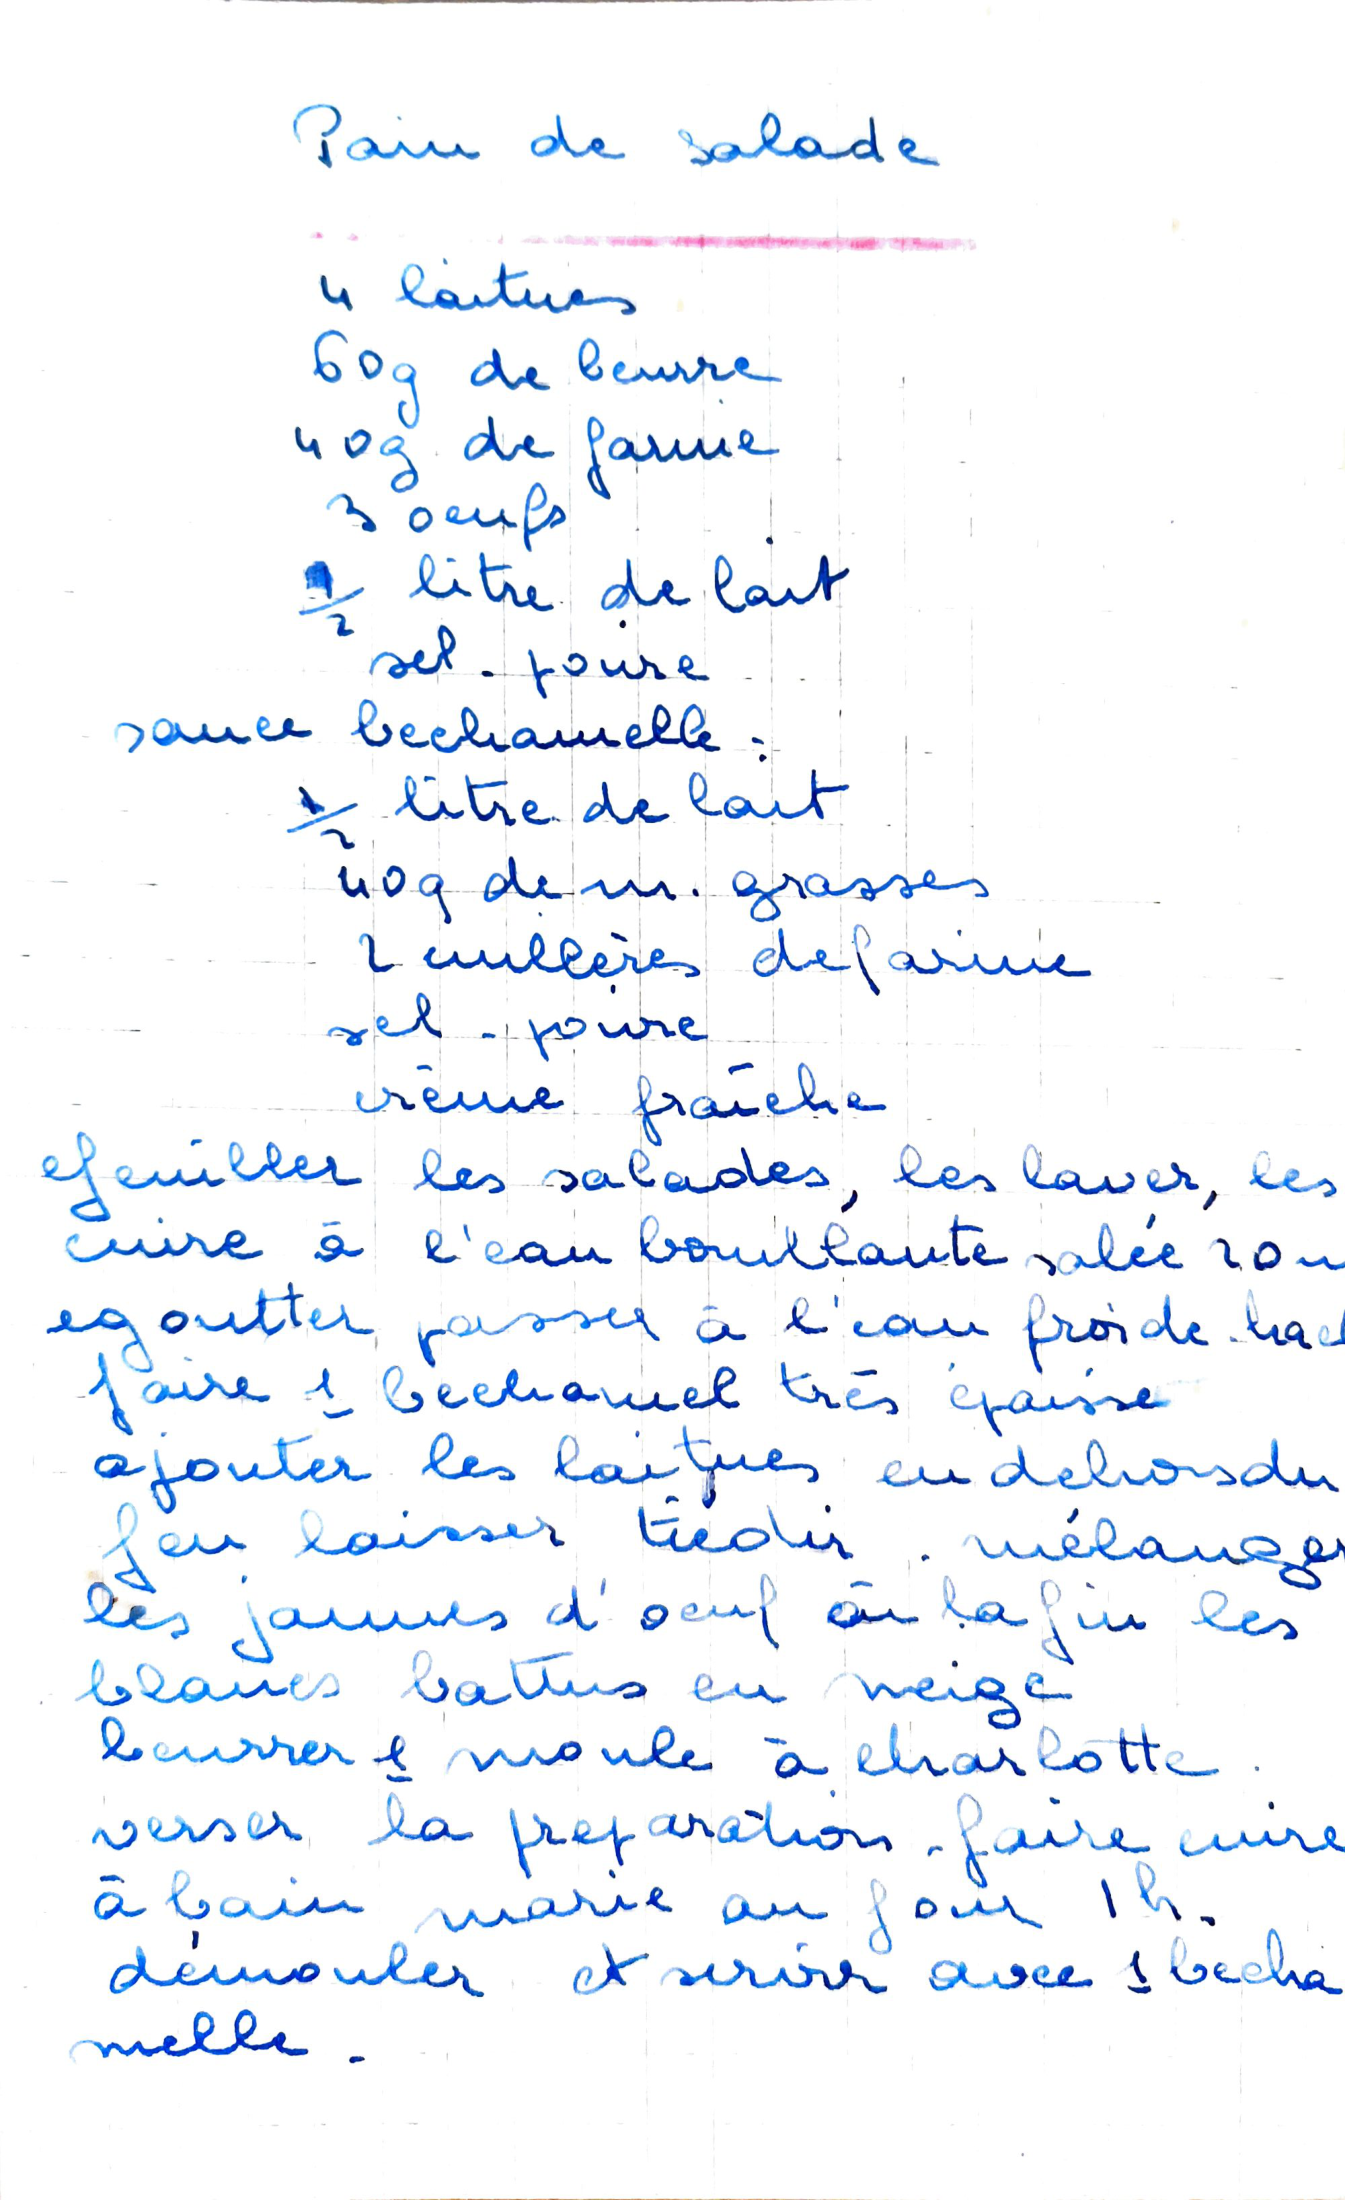 Pain de salade
4 laitues
60g de beurre
40g de farine
3 oeufs
1/2 litre de lait
sel - poivre
sauce bechamelle :
1/2 litre de lait
40g de m. grasses
2 cuillères de farine
sel - poivre
crème fraîche
efeuiller les salades, les laver, les
cuire à l'eau bouillante salée
egoutter passer à l'eau froide
faire 1 bechamel très épaisse
ajouter les laitues en dehors du
feu laisser tiedir . mélanger
les jaunes d'oeuf la fin les
blancs battus en neige
beurrer 1 moule à charlotte .
verser la preparation - faire cuire
à bain marie au four 1h.
démouler et servir avec 1 bécha
melle .